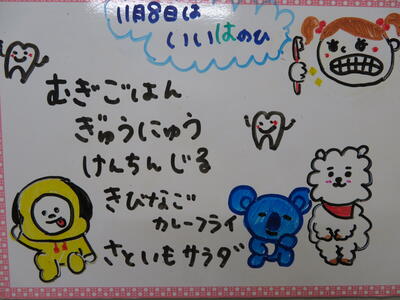 11月8日は
いいはのひ
むぎごはん
ぎゅうにゅう
けんちんじる
きびなご
カレーフライ
さといもサラダ